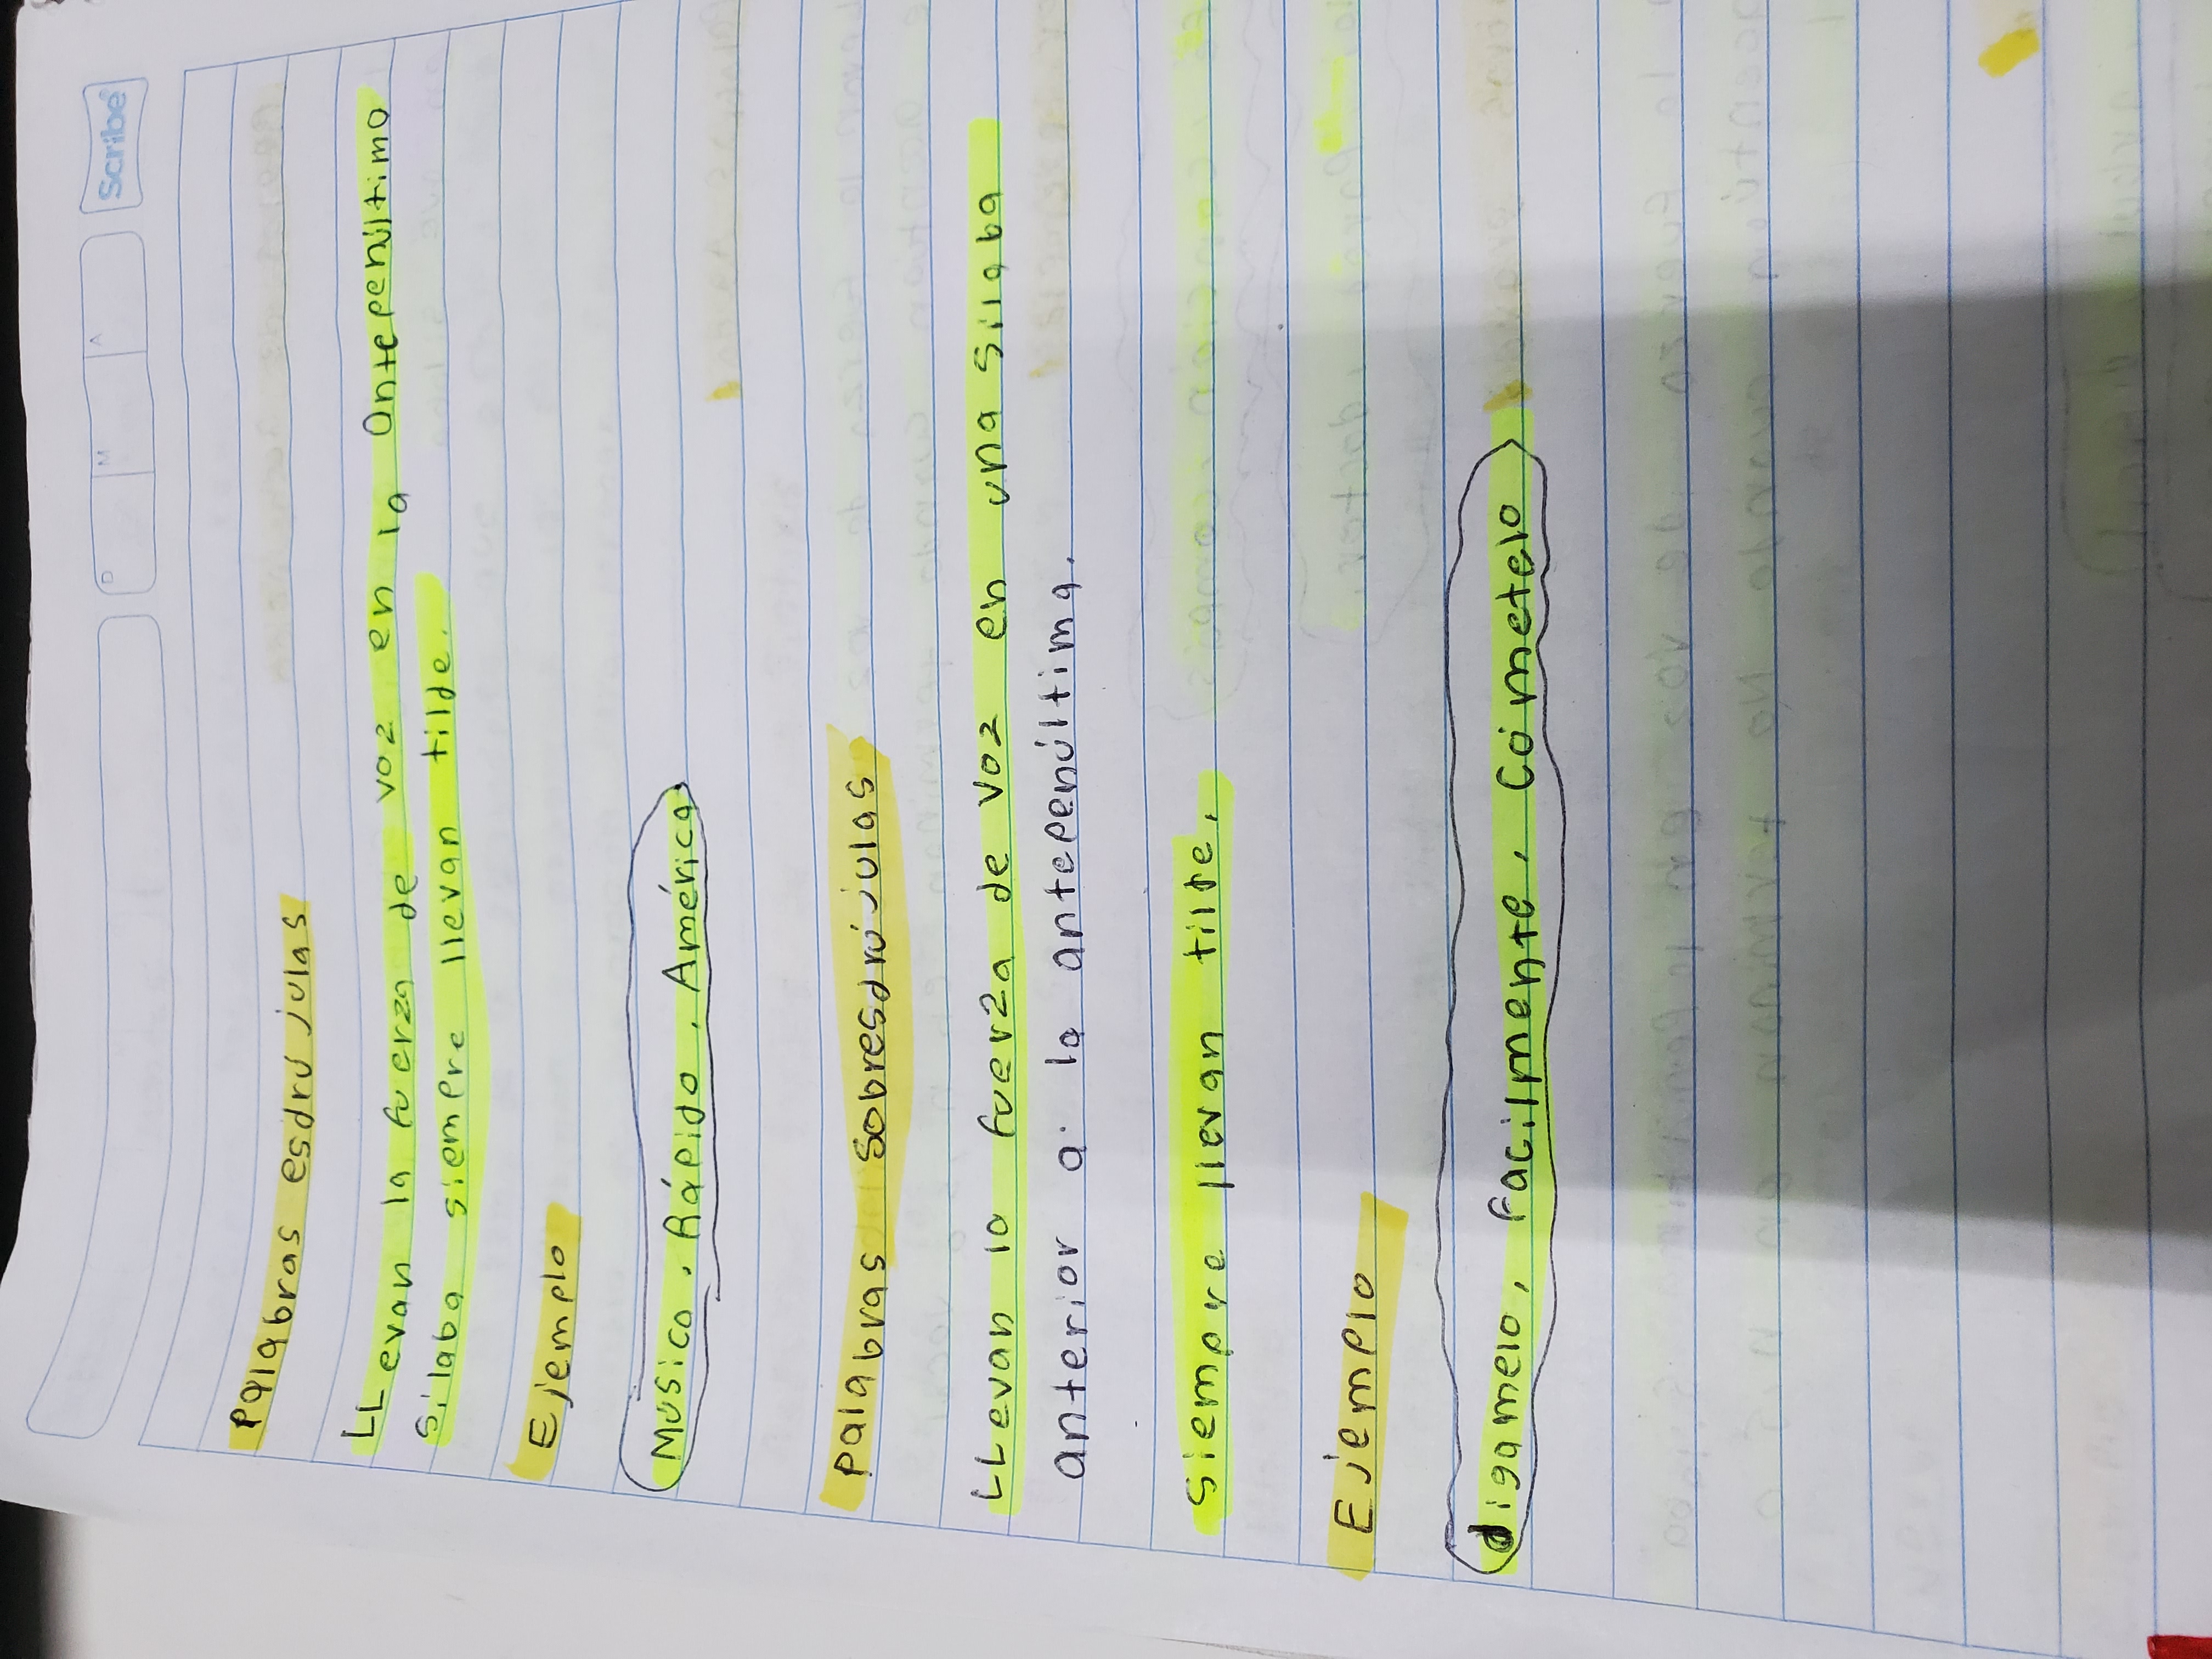 Scribe
D M A
Palabras esdrújulas
LLevan la fuerza de voz en la antepenúltimo
Silaba siempre llevan tilde.
Ejemplo
Músico, Rápido, América
Palabras Sobresdrújulas
LLevan la fuerza de voz en una Silaba
anterior a la antepenúltima.
Siempre llevan tilde,
Ejemplo
digamelo, Facilmente, Cómetelo